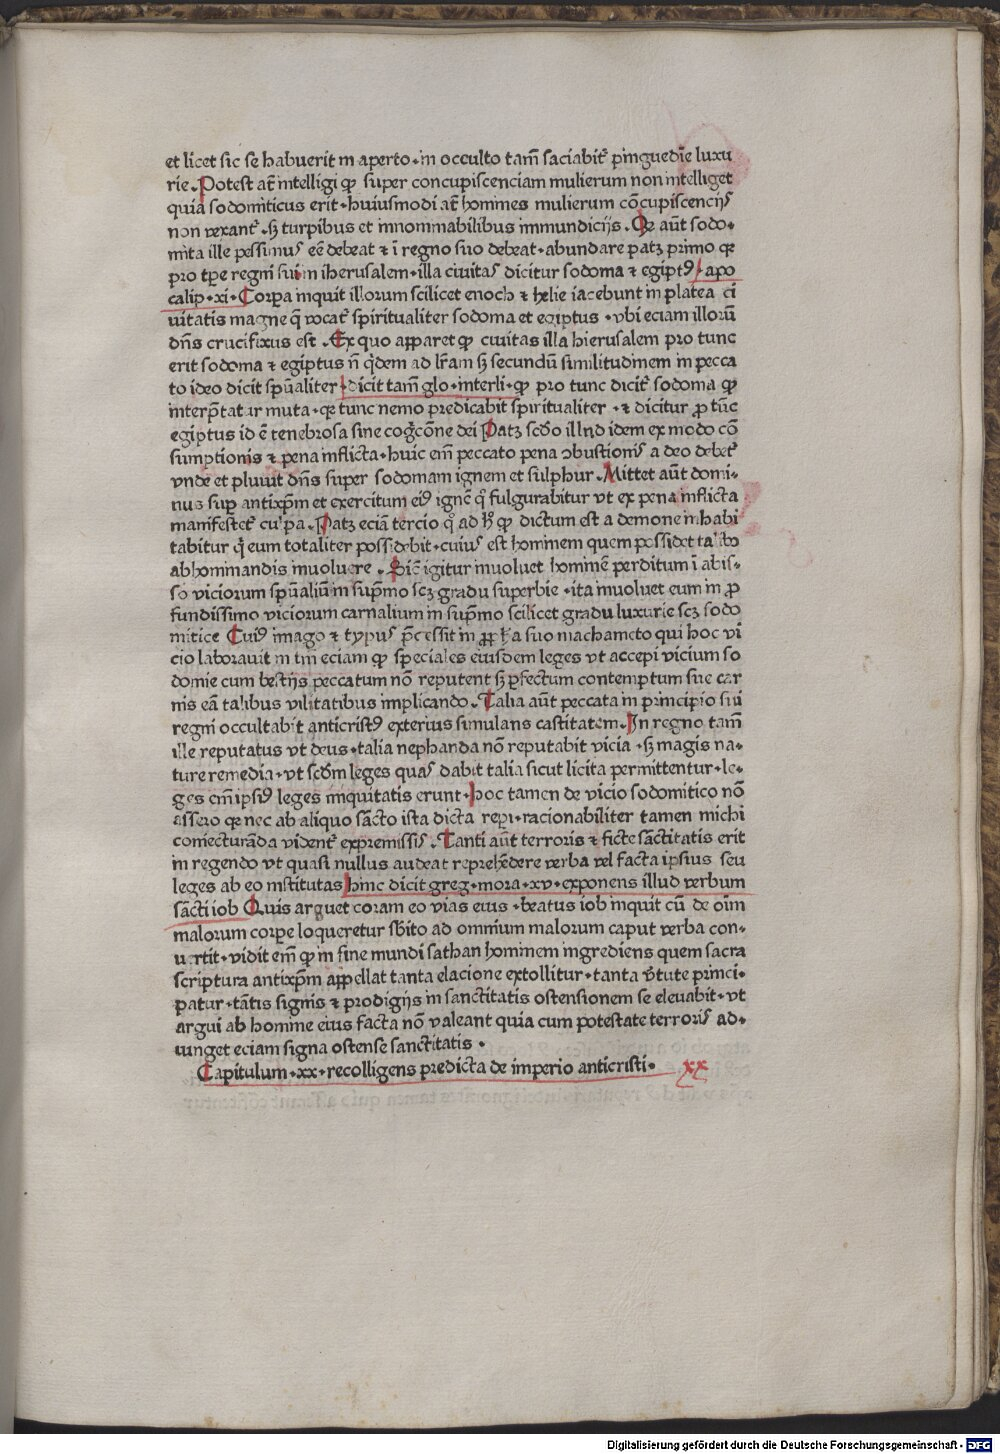 et licet sic se habuerit in aperto · in occulto tam̄ saciabit᷑ pinguedīe luxu
rie · Potest at̄ intelligi ꝙ super concupiscenciam mulierum non intelliget
quia sodomiticus erit · huiusmodi at̄ homines mulierum cōcupiscencijs
non vexant᷑ · sꝫ turpibus et innominabilibus immundicijs · Qꝛ aūt sodo·
mita ille pessimus eē debeat ⁊ ī regno suo debeat · abundare patꝫ primo qꝛ
pro tꝑe regni sui in iherusalem · illa ciuitas dicitur sodoma ⁊ egiptꝰ · apo
calip · xi · Corpa inquit illorum scilicet enoch ⁊ helie iacebunt in platea ci
uitatis magne q̄ vocat᷑ spiritualiter sodoma et egiptus · vbi eciam illorū
dn̄s crucifixus est · Ex quo apparet ꝙ ciuitas illa hierusalem pro tunc
erit sodoma ⁊ egiptus n̄ q̇dem ad lr̄am sꝫ secundū similitudinem in pecca
to ideo dicit spūaliter · dicit tam̄ glo · interli · ꝙ pro tunc dicit᷑ sodoma ꝙ
interp̄tatur muta · qꝛ tunc nemo predicabit spiritualiter · ⁊ dicitur ꝓ tūc
egiptus id ē tenebrosa sine coḡcōne dei Patꝫ scḋo illud idem ex modo cō
sumptionis ⁊ pena inflicta · huic em̄ peccato pena ↄbustionis a deo debet᷑
vnde et pluuit dn̄s super sodomam ignem et sulphur · Mittet aūt domi·
nus suꝑ antixp̄m et exercitum eiꝰ ignē q̊ fulgurabitur vt ex pena inflicta
manifestet᷑ culpa · Patꝫ eciā tercio q̊ ad hͦ ꝙ dictum est a demone inhabi
tabitur q̇ eum totaliter possidebit · cuius est hominem quem possidet talibꝰ
abhominandis inuoluere · Sic̄ igitur inuoluet hominē perditum ī abis·
so viciorum spūaliū in sup̄mo scꝫ gradu superbie · ita inuoluet eum in ꝓ
fundissimo viciorum carnalium in sup̄mo scilicet gradu luxurie scꝫ sodo
mitice Cuiꝰ imago ⁊ typus p̄cessit in ꝓph̄a suo machameto qui hoc vi
cio laborauit in tm̄ eciam ꝙ speciales eiusdem leges vt accepi vicium so
domie cum bestijs peccatum nō reputent sꝫ ꝑfectum contemptum sue car
nis eā talibus vilitatibus implicando · Talia aūt peccata in principio sui
regni occultabit anticristꝰ exterius simulans castitatem · In regno tam̄
ille reputatus vt deus · talia nephanda nō reputabit vicia · sꝫ magis na·
ture remedia · vt scḋm leges quas dabit talia sicut licita permittentur · le·
ges em̄ ipsiꝰ leges iniquitatis erunt · hoc tamen de vicio sodomitico nō
assero qꝛ nec ab aliquo sācto ista dicta reperi · racionabiliter tamen michi
coniecturāda vident᷑ ex premissis · Tanti aūt terroris ⁊ ficte sāctitatis erit
in regendo vt quasi nullus audeat reprehēdere verba vel facta ipsius seu
leges ab eo institutas hinc dicit greg · mora · xv · exponens illud verbum
sācti iob Quis arguet coram eo vias eius · beatus iob inquit cū de oīm
malorum corpe loqueretur sḃito ad omnium malorum caput verba con·
uertit · vidit em̄ ꝙ in fine mundi sathan hominem ingrediens quem sacra
scriptura antixp̄m appellat tanta elacione extollitur · tanta v̄tute princi·
patur · tātis signis ⁊ prodigijs in sanctitatis ostensionem se eleuabit · vt
argui ab homine eius facta nō valeant quia cum potestate terroris ad·
iunget eciam signa ostense sanctitatis ·
Capitulum · xx · recolligens predicta de imperio anticristi · xx
Digitalisierung gefördert durch die Deutsche Forschungsgemeinschaft - DFG